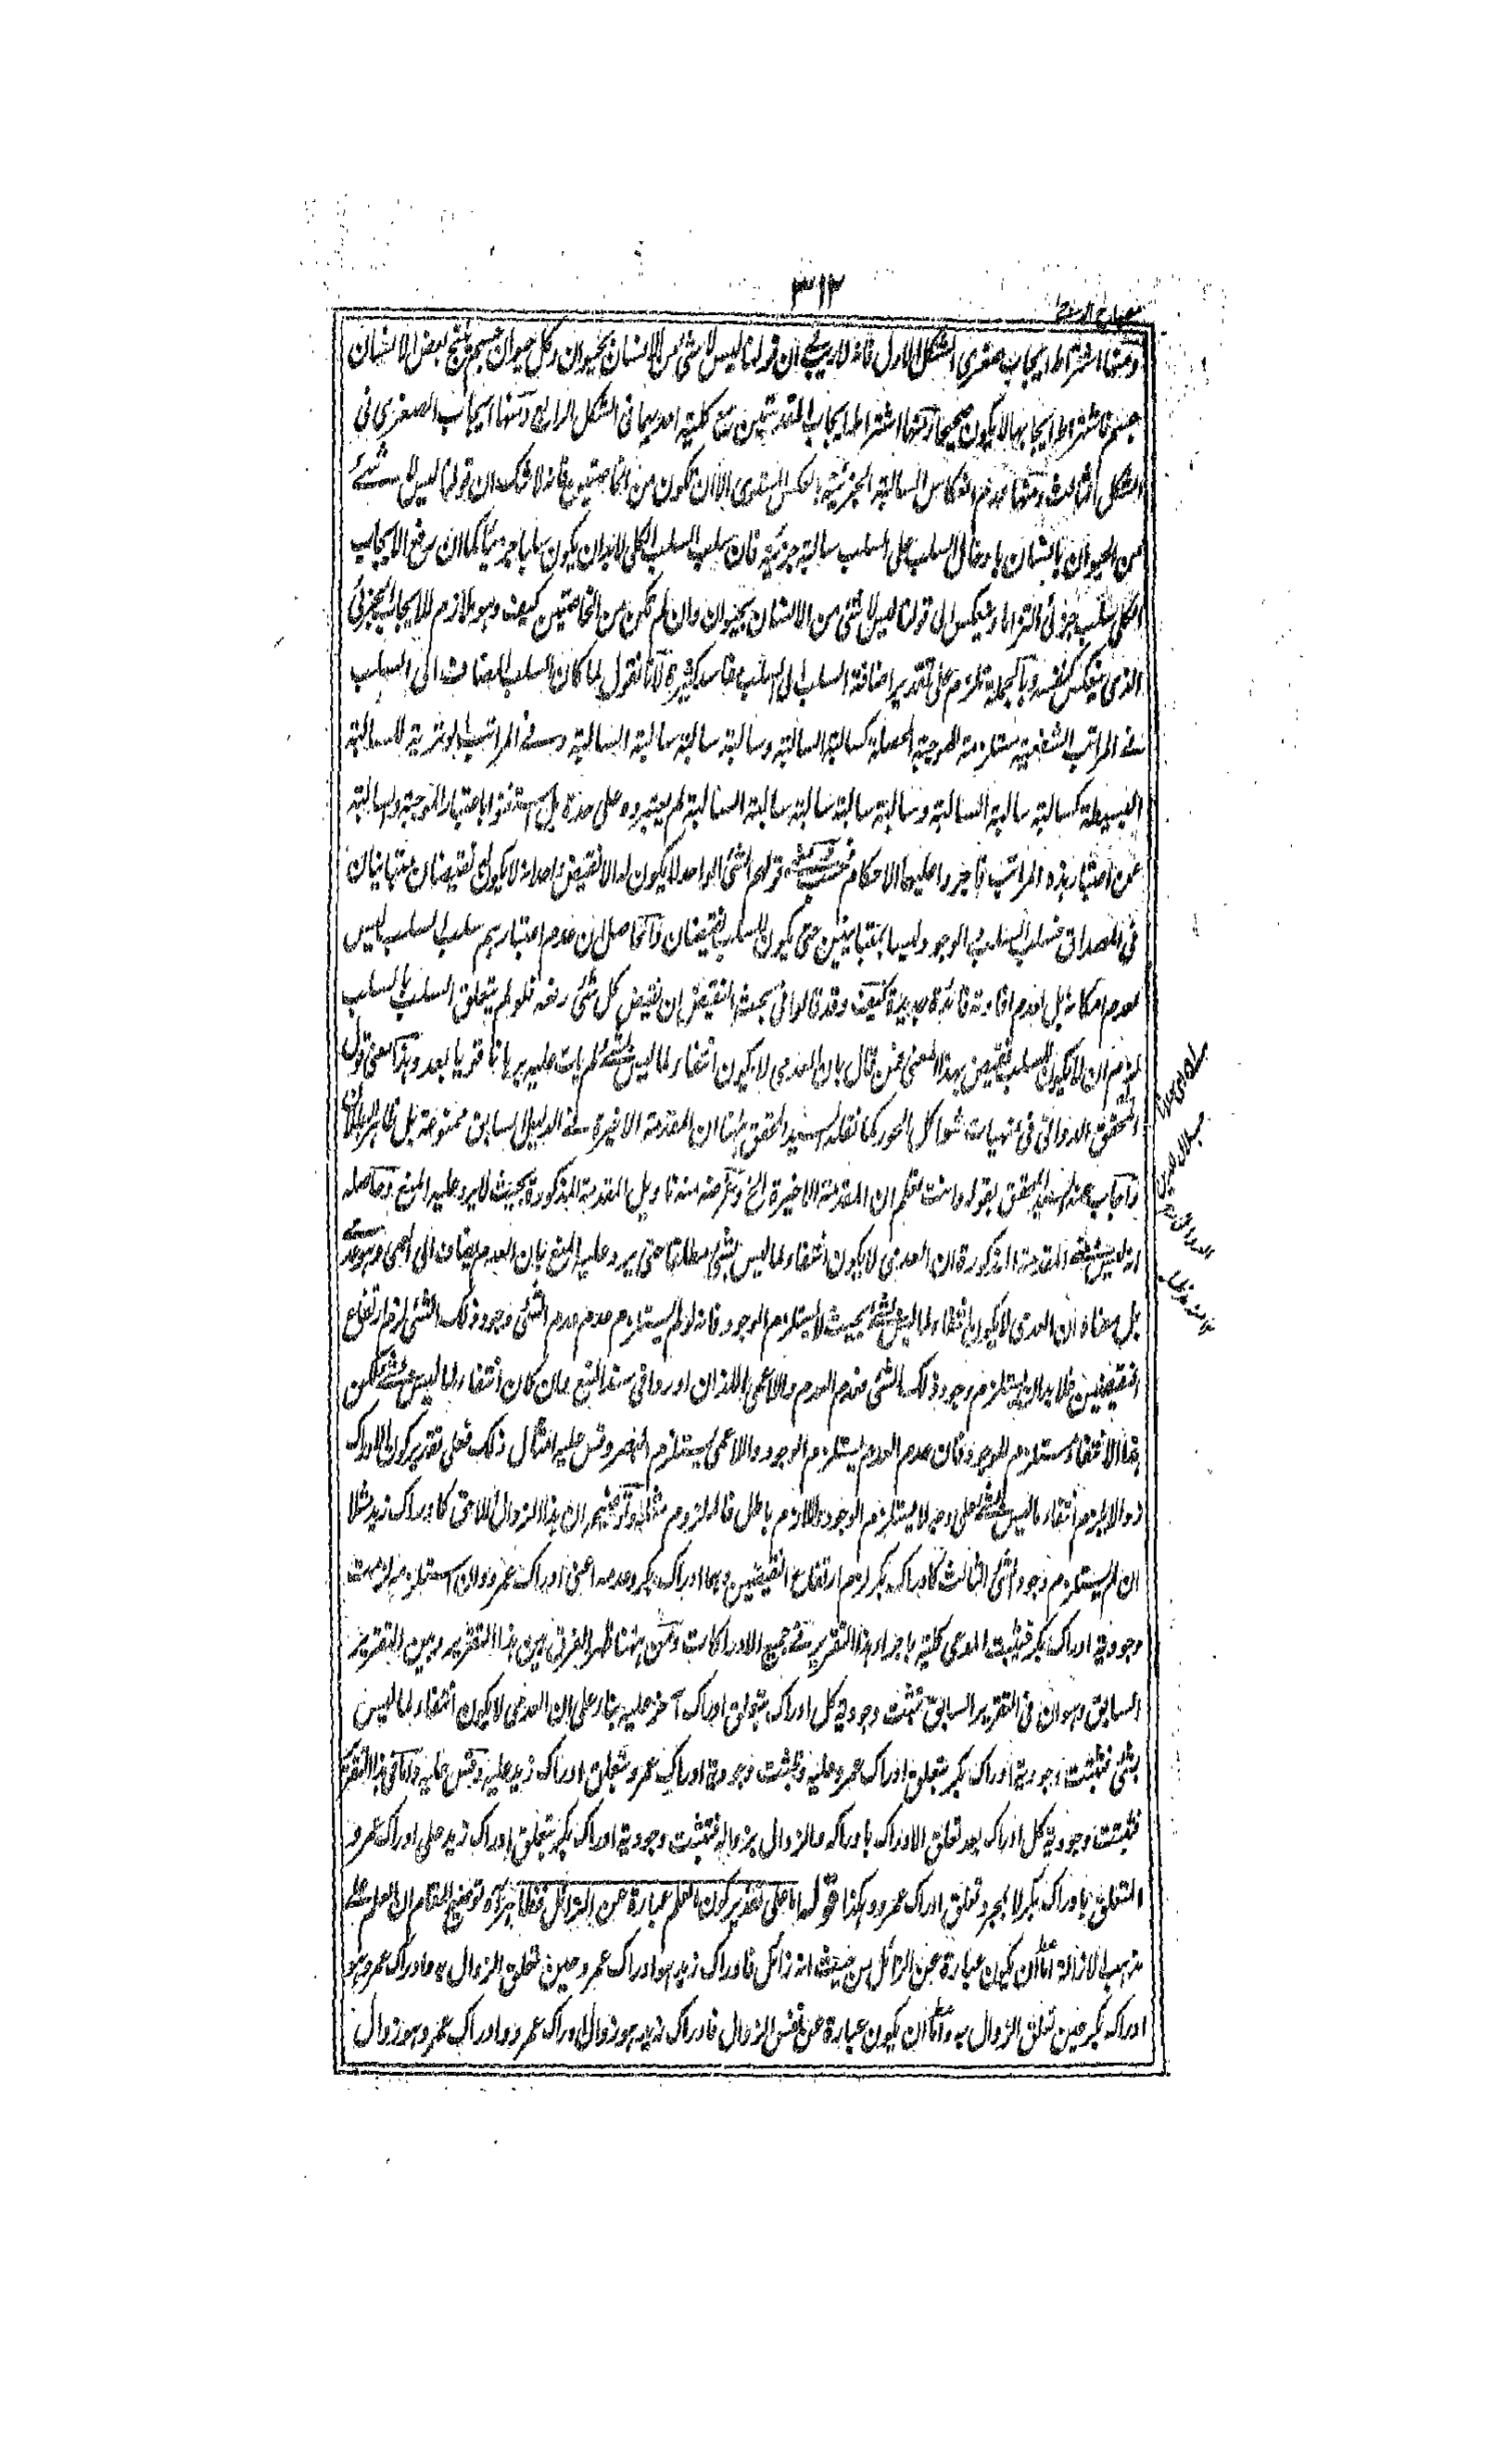 ٣١٢
مصباح الدجى
ومنها اشتراط ايجاب صغرى الشكل الاول فانه لاريب فى ان قولنا ليس لا شئ من الانسان بحيوان وكل حيوان جسم ينتج بعض الانسان
جسم فاشتراط ايجابها لا يكون صحيحا ومنها اشتراط ايجاب المقدمتين مع كلية احدهما فى الشكل الرابع ومنها ايجاب الصغرى فى
الشكل الثالث ومنها عدم انعكاس السالبة الجزئية بالعكس المستوى الا ان تكون من الخاصتين فانه لا شك ان قولنا ليس لا شئ
من الحيوان بانسان بادخال السلب على السلب سالبة جزئية فان سلب السلب الكلى لابد ان يكون سلبا جزئيا كما ان رفع الايجاب
الكلى سلب جزئى التزاما وينعكس الى قولنا ليس لا شئ من الانسان بحيوان وان لم تكن من الخاصتين كيف وهو ملازم للايجاب الجزئى
الذى ينعكس كنفسه وبالجملة تلزم على تقدير اضافة السلب الى السلب مفاسد كثيرة لانا نقول لما كان السلب المضاف الى السلب
فى المراتب الشفعية مستلزمة للموجبة المحصلة كسالبة السالبة وسالبة سالبة سالبة السالبة وفى المراتب الوترية للسالبة
البسيطة كسالبة سالبة السالبة وسالبة سالبة سالبة سالبة السالبة لم يعتبروه على حدة بل استغنوا باعتبار الموجبة والسالبة
عن اعتبار هذه المراتب فاجروا عليها الاحكام قولهم الشئ الواحد لا يكون له الا نقيض واحد انه لا يكون له نقيضان متباينان
فى المصداق فسلب السلب والوجود ليسا بمتباينين حتى يكون للسلب نقيضان والحاصل ان عدم اعتبارهم سلب السلب ليس
لعدم امكانه بل لعدم افادته فائدة جديدة كيف وقد قالوا فى بحث النقيض ان نقيض كل شئ رفعه فلو لم يتعلق السلب بالسلب
لزم ان لا يكون للسلب نقيض بهذا المعنى فمن قال بان العدمى لا يكون انتفاء لما ليس بشئ لم يات عليه برهانا قويا بعد وهذا معنى قول
المحقق الدوانى فى منهيات شواكل الحور كما نقله السيد المحقق ههنا ان المقدمة الاخيرة فى الدليل السابق ممنوعة بل ظاهر البطلان
واجاب عنه السيد المحقق بقوله وانت تعلم ان المقدمة الاخيرة الخ وغرضه منه تاويل المقدمة المذكورة بحيث لا يرد عليه المنع وحاصله
انه ليس المقدمة المذكورة ان العدمى لا يكون انتفاء لما ليس بشئ مطلقا حتى يرد عليه المنع بان العدم يضاف الى اعمى وهو
بل معناه ان العدمى لا يكون انتفاء لما ليس بشئ بحيث لا يستلزم الوجود فانه لو لم يستلزم عدم عدم الشئ وجود ذلك الشئ لزم ارتفاع
النقيضين فلابد ان يستلزم وجود ذلك الشئ فعدم العدم واللاعمى اللذان اوردا فى سند المنع وان كان انتفاء لما ليس بشئ لكن
هذا الانتفاء مستلزم للوجود فان عدم العدم يستلزم الوجود واللاعمى يستلزم البصر وقس عليه امثال ذلك فعلى تقدير كون الادراك
زوالا يلزم انتفاء ما ليس بشئ على وجه لا يستلزم الوجود واللازم باطل فالملزوم مثله وتوضيحه ان هذا الزوال اللاحق كادراك زيد مثلا
ان لم يستلزم وجود الشئ الثالث كادراك بكر لزم ارتفاع النقيضين وهما ادراك بكر وعدمه اعنى ادراك عمرو وان استلزمه لزمت
وجودية ادراك بكر فيثبت المدعى كلية باجراء هذا التقرير فى جميع الادراكات ومن ههنا ظهر الفرق بين هذا التقرير وبين التقرير
السابق وهو ان فى التقرير السابق تثبت وجودية كل ادراك بتعلق ادراك آخر عليه بناء على ان العدمى لا يكون انتفاء لما ليس
بشئ فتثبت وجودية ادراك بكر بتعلق ادراك عمرو عليه وتثبت وجودية ادراك عمرو بتعلق ادراك زيد عليه وقس عليه واما فى هذا التقرير
فتثبت وجودية كل ادراك بعد تعلق الادراك بادراكه والزوال بزواله فتثبت وجودية ادراك بكر بتعلق ادراك زيد على ادراك عمرو
المتعلق بادراك بكر لا بمجرد تعلق ادراك عمرو وهكذا قوله اما على تقدير كون العلم عبارة عن الزائل فظاهر آه توضيح المقام ان العلم على
مذهب الازالة اما ان يكون عبارة عن الزائل من حيث انه زائل فادراك زيد هو ادراك عمرو حين تعلق الزوال به وادراك عمرو هو
ادراك بكر حين تعلق الزوال به واما ان يكون عبارة عن نفس الزوال فادراك زيد هو زوال ادراك عمرو وادراك عمرو هو زوال